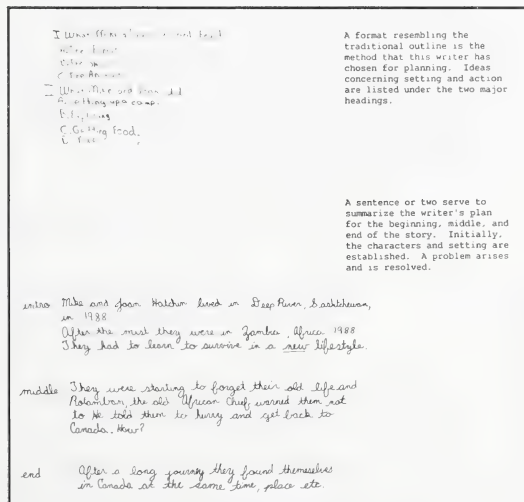 I What
A format resembling the
traditional outline is the
method that this writer has
chosen for planning. Ideas
concerning setting and action
are listed under the two major
headings.
II What Mike and Joan did
A. setting up a camp.
B. Exploring
C. Getting Food.
A sentence or two serve to
summarize the writer's plan
for the beginning, middle, and
end of the story. Initially,
the characters and setting are
established. A problem arises
and is resolved.
intro Mike and Joan lived in Deep River, Saskatchewan,
in 1988
After the mist they were in Zambia, Africa 1988
They had to learn to survive in a new lifestyle.
middle They were starting to forget their old life and
the old African Chief, warned them not
to He told them to hurry and get back to
Canada. How?
end After a long journey they found themselves
in Canada at the same time, place etc.